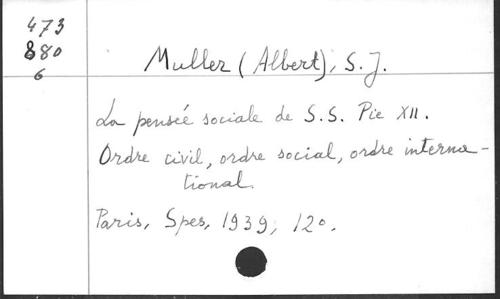 473
880
6
Muller (Albert), S.J.
La pensée sociale de S.S. Pie XII.
Ordre civil, ordre social, ordre interna-
tional.
Paris, Spes, 1939, 12°.